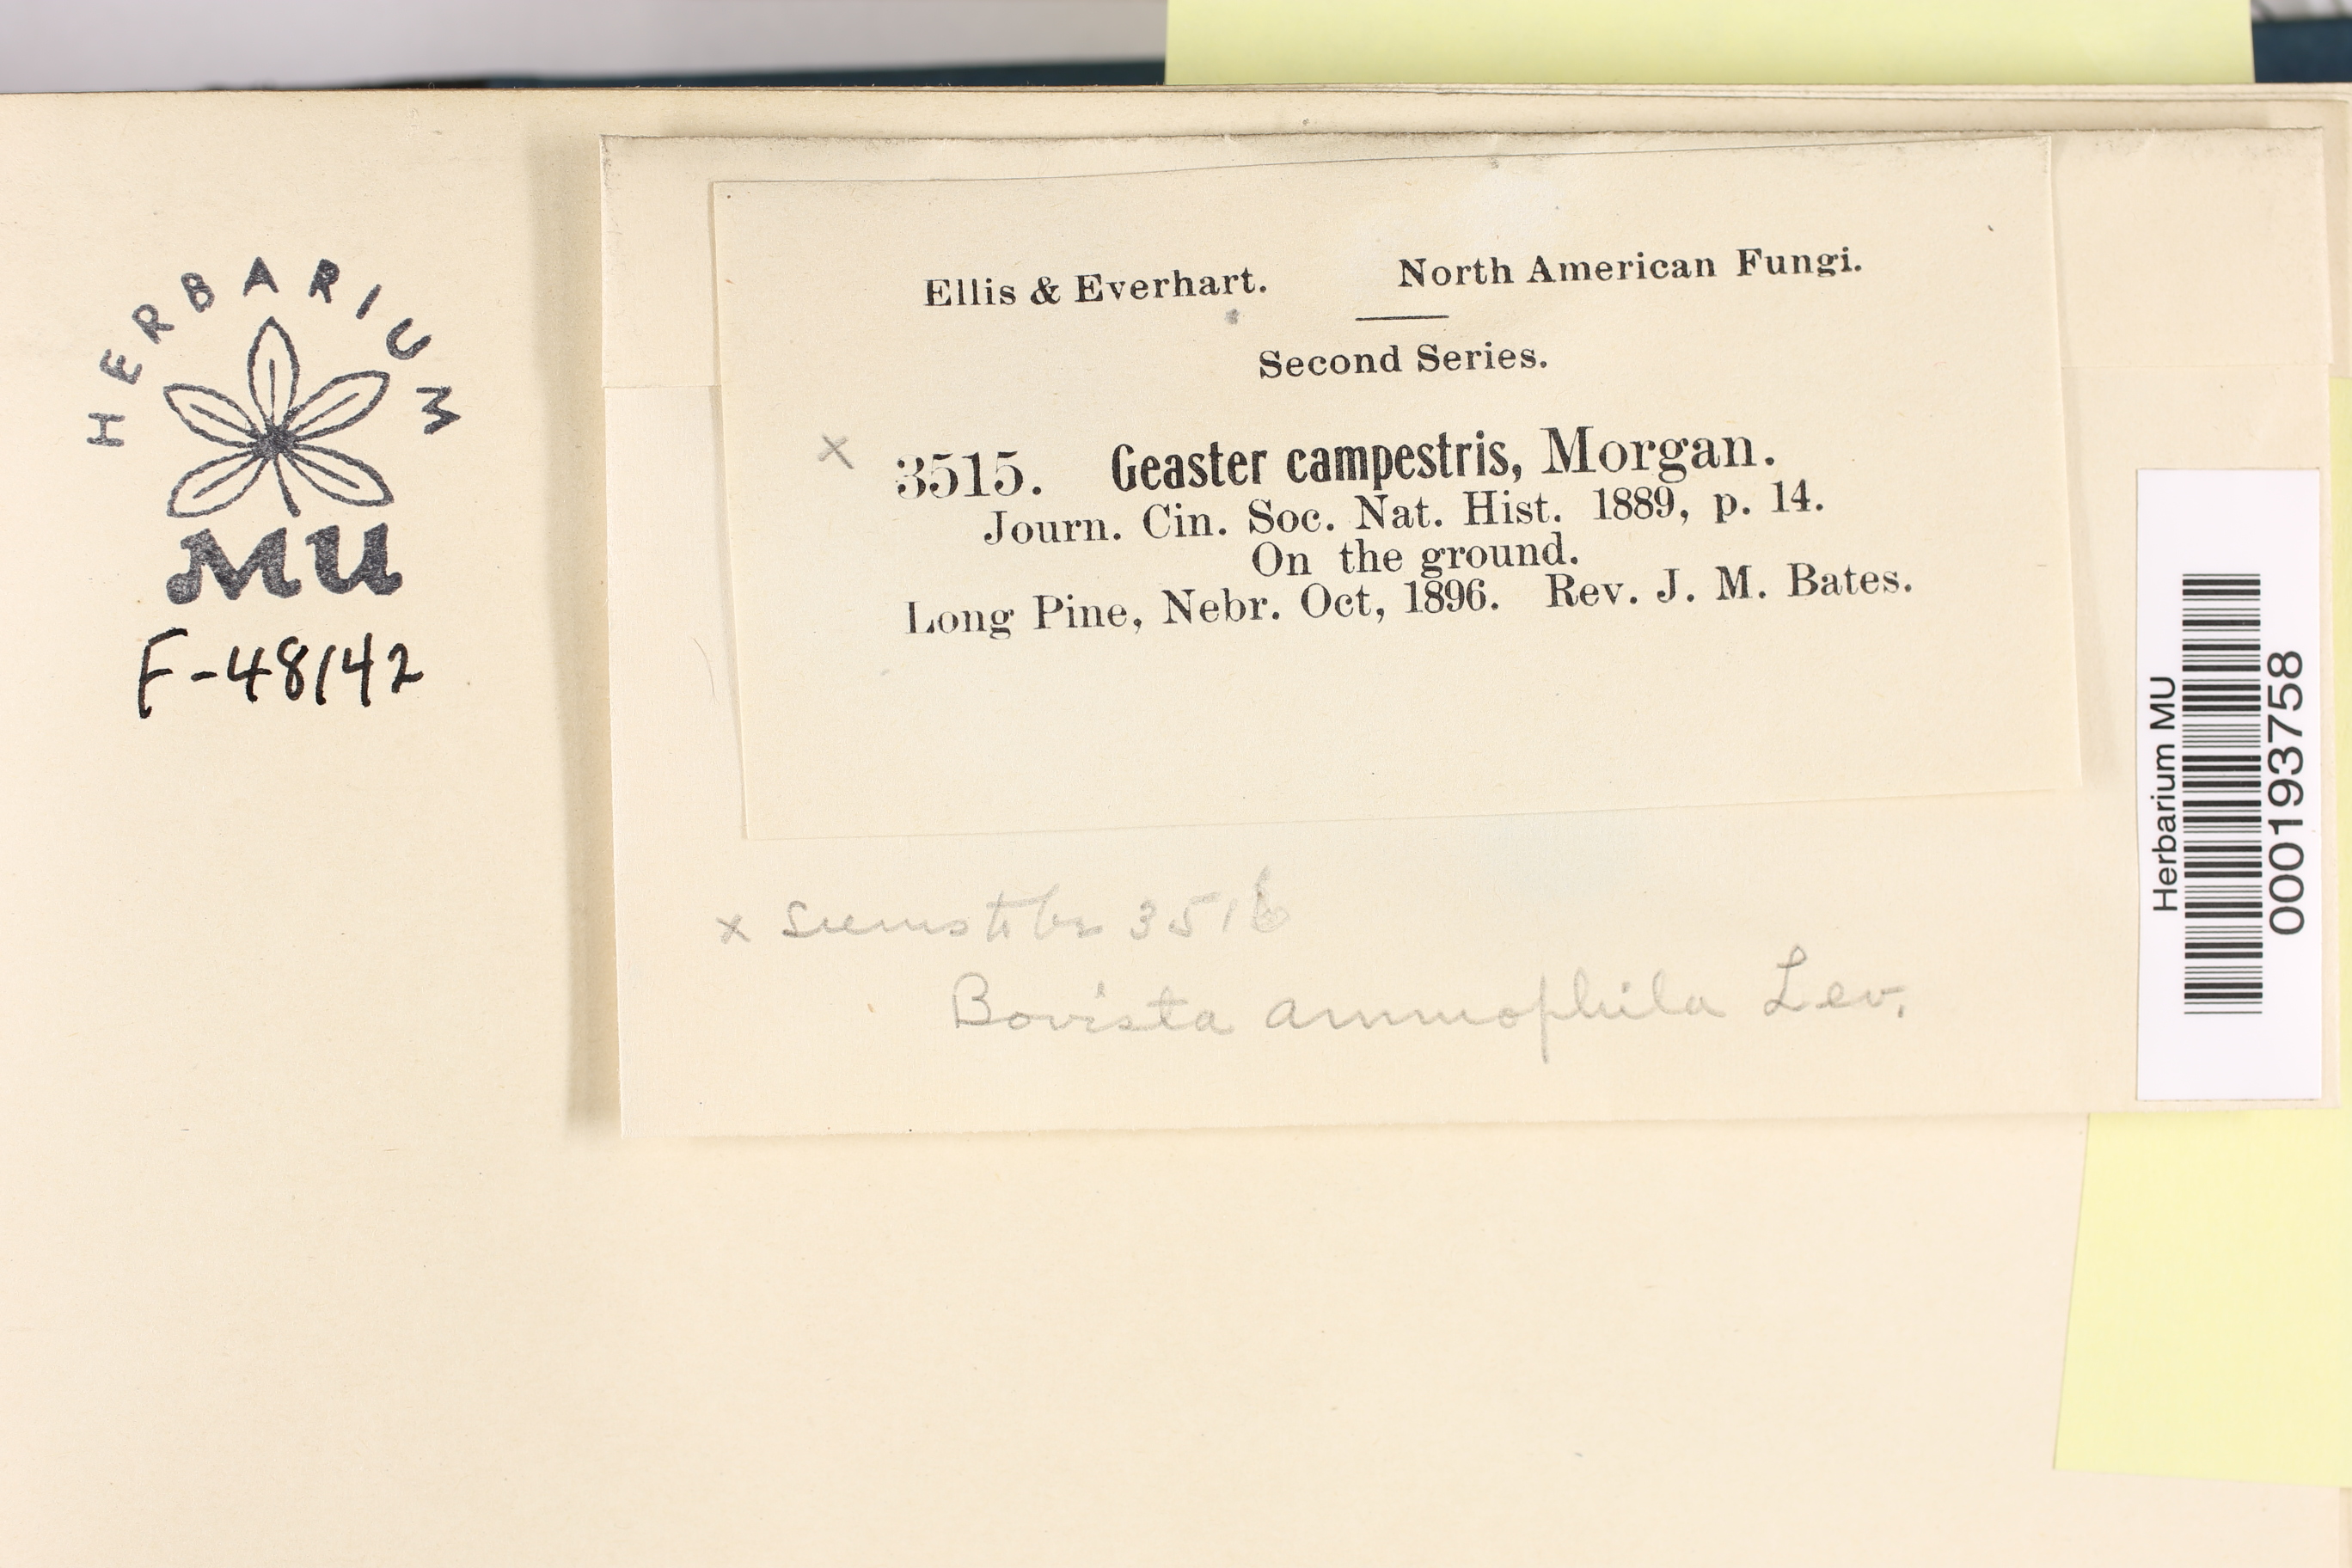 HERBARIUM
MU
F-48142
Ellis & Everhart. North American Fungi.
Second Series.
x 3515. Geaster campestris, Morgan.
Journ. Cin. Soc. Nat. Hist. 1889, p. 14.
On the ground.
Long Pine, Nebr. Oct, 1896. Rev. J. M. Bates.
x 3516
Bovista ammophila Lev.
Herbarium MU
000193758